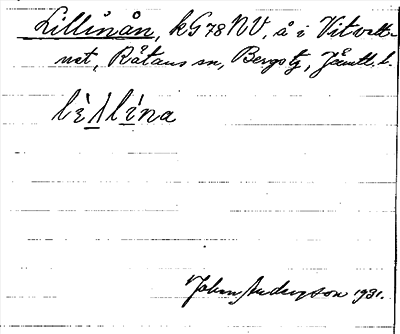 Lillinån, kG78NV, å i Vitvatt-
net, Råtans sn, Bergs tg, Jämtl. l.
lìʌlína
John Andersson 1931.